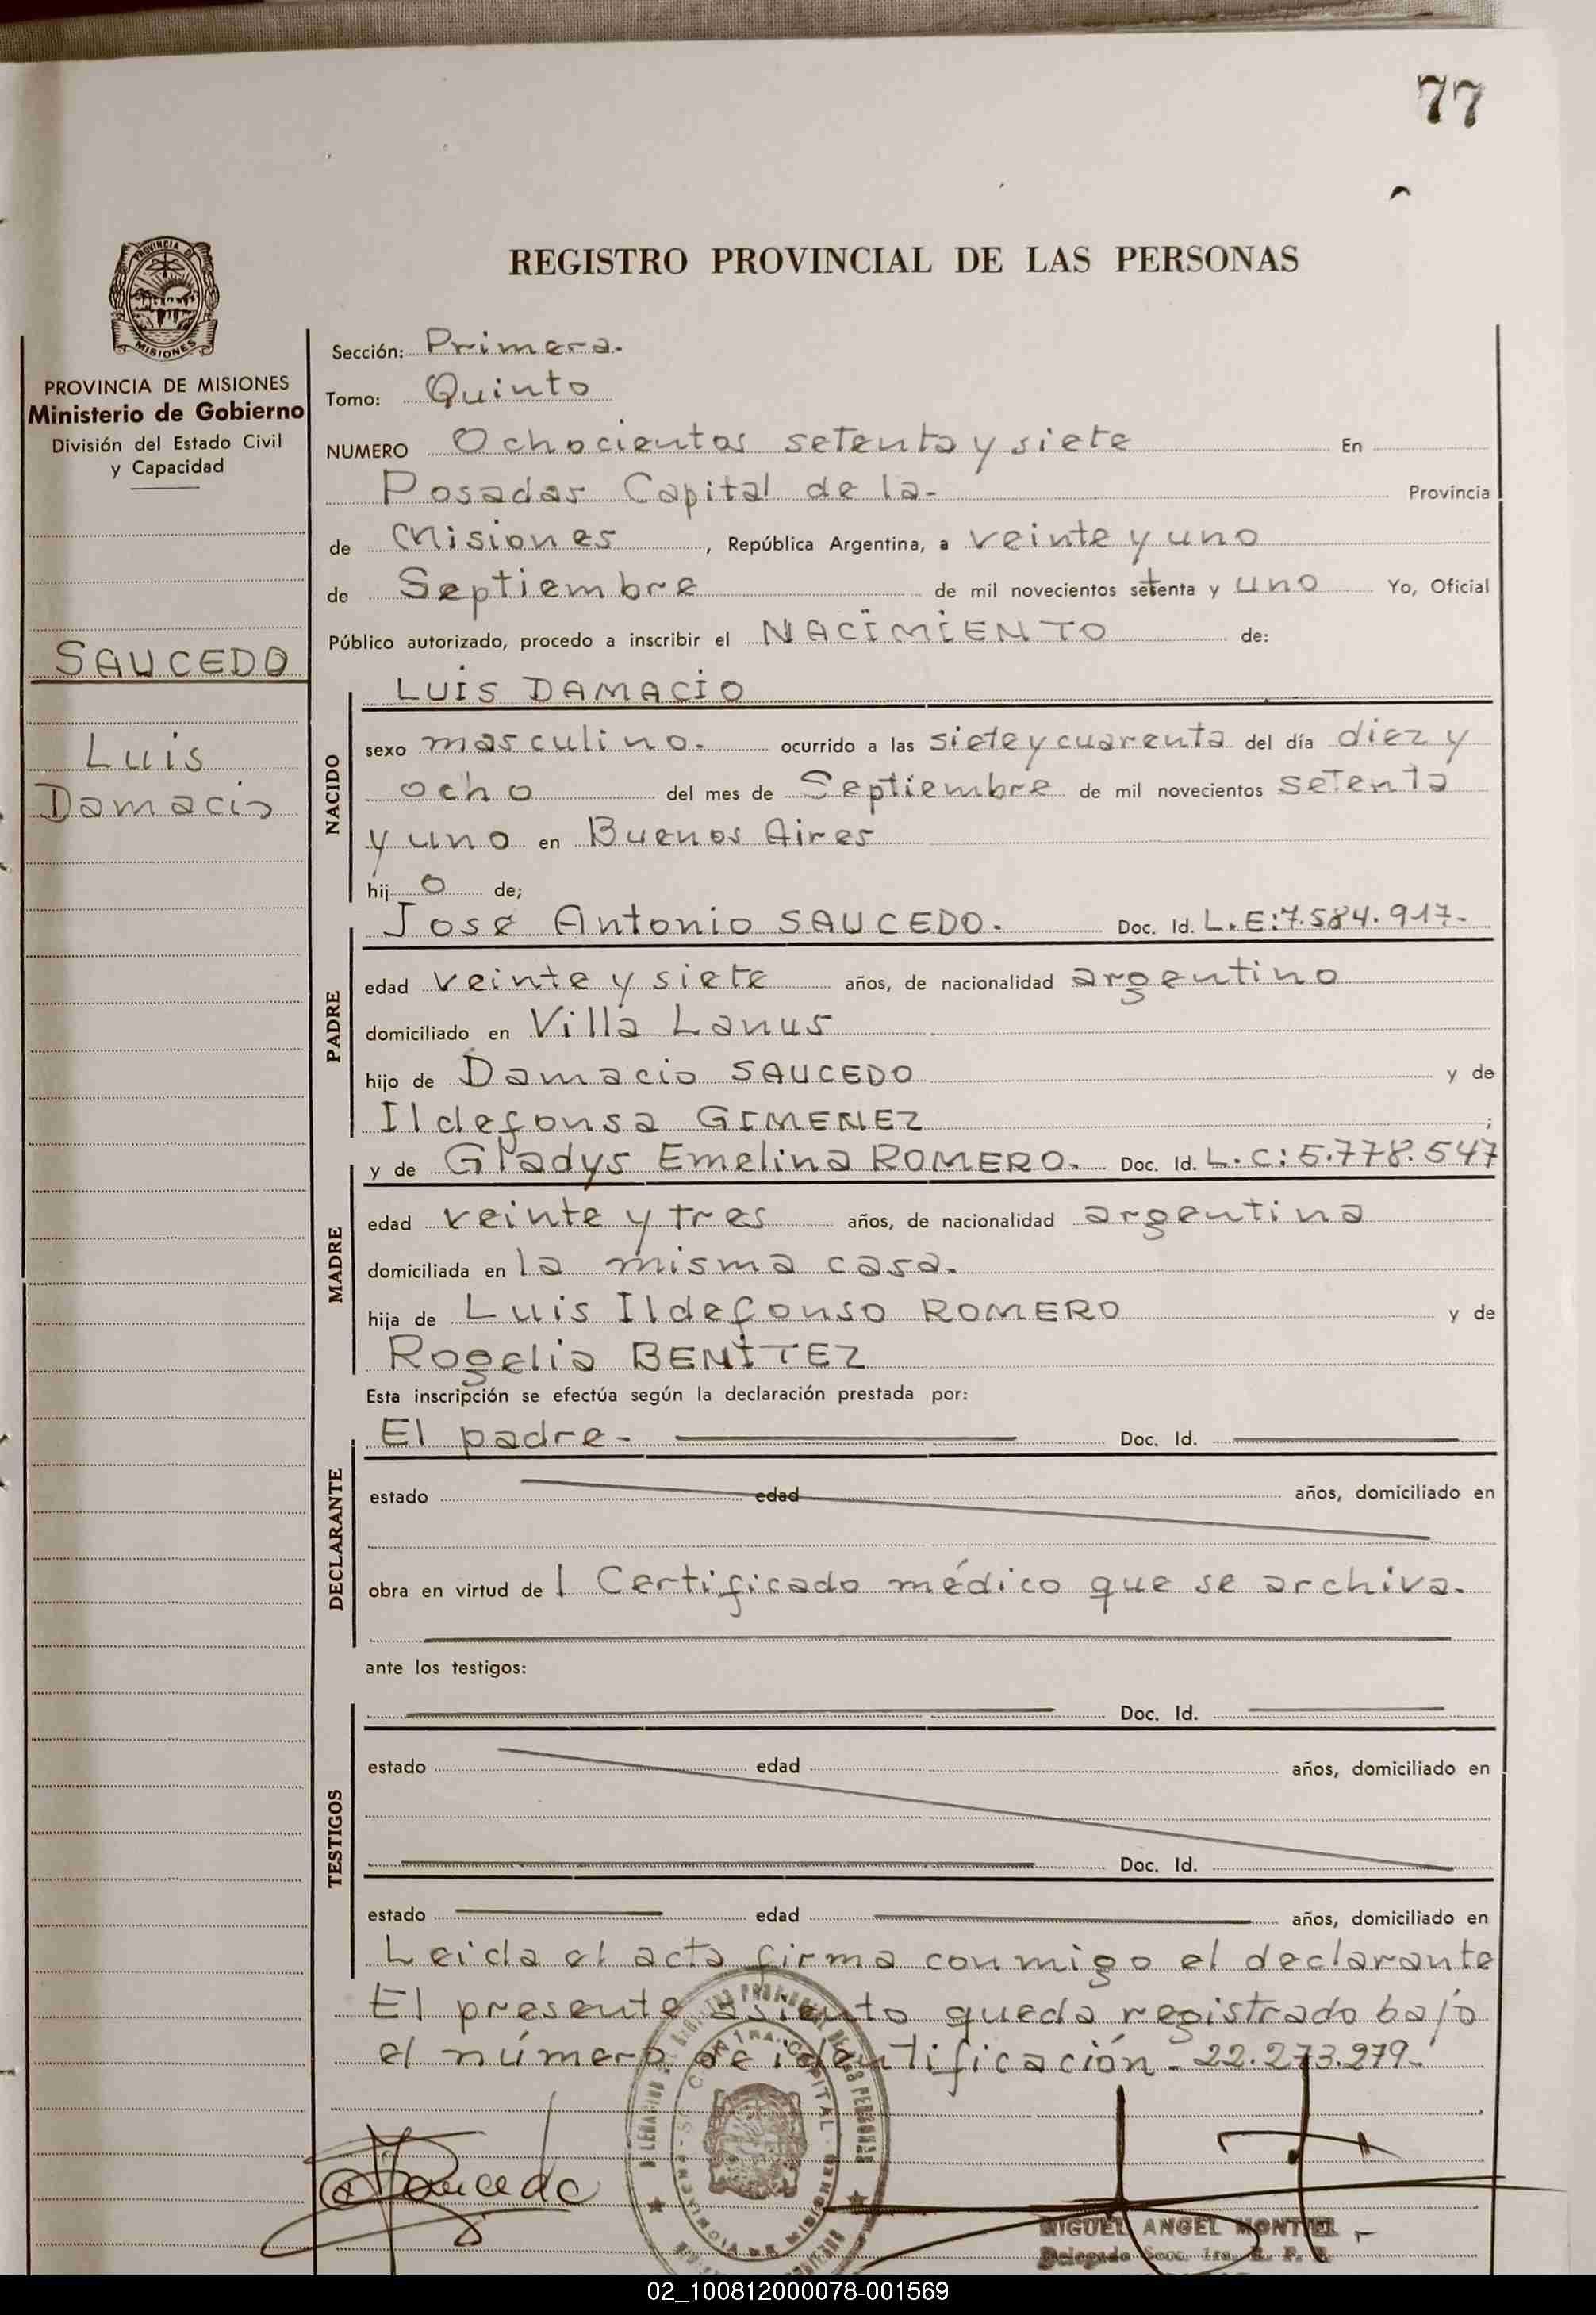 77
REGISTRO PROVINCIAL DE LAS PERSONAS
PROVINCIA DE MISIONES
Ministerio de Gobierno
División del Estado Civil
y Capacidad
SAUCEDO
Luis
Damacio
Sección: Primera.
Tomo: Quinto
NUMERO Ochocientos setenta y siete En
Posadas Capital de la- Provincia
de Misiones, República Argentina, a veinte y uno
de Septiembre de mil novecientos setenta y uno Yo, Oficial
Público autorizado, procedo a inscribir el NACIMIENTO de:
LUIS DAMACIO
NACIDO
sexo masculino. ocurrido a las siete y cuarenta del día diez y
ocho del mes de Septiembre de mil novecientos setenta
y uno en Buenos Aires
hijo de;
José Antonio SAUCEDO. Doc. Id. L.E:7.584.917-
PADRE
edad veinte y siete años, de nacionalidad argentino
domiciliado en Villa Lanus
hijo de Damacio SAUCEDO y de
Ildefonsa GIMENEZ ;
y de Gladys Emelina ROMERO. Doc. Id. L.C: 5.778.547
MADRE
edad veinte y tres años, de nacionalidad argentina
domiciliada en la misma casa.
hija de Luis Ildefonso ROMERO y de
Rogelia BENITEZ
Esta inscripción se efectúa según la declaración prestada por:
El padre- Doc. Id.
DECLARANTE
estado edad años, domiciliado en
obra en virtud de l Certificado médico que se archiva.
ante los testigos:
Doc. Id.
TESTIGOS
estado edad años, domiciliado en
Doc. Id.
estado edad años, domiciliado en
Leida el acta firma conmigo el declarante
El presente asiento queda registrado bajo
el número de identificación - 22.273.279-
Saucedo
MIGUEL ANGEL MONTIEL
Delegado Secc. 1ra. R. P. P.
02_100812000078-001569